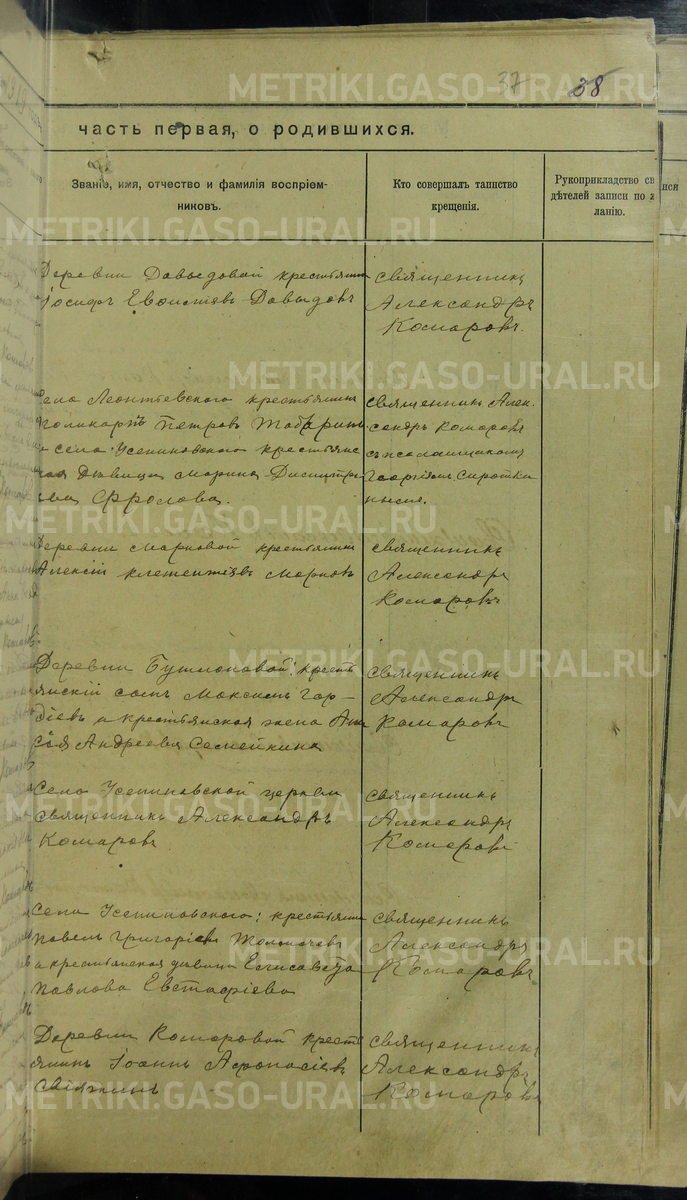 METRIKI.GASO-URAL.RU
37 38
часть первая, о родившихся.
Званіе, имя, отчество и фамилія воспріем-
никовъ.
Кто совершалъ таинство
крещенія.
Рукоприкладство св
дѣтелей записи по ж
ланію.
Деревни Давыдовой крестьянинъ
Іосифъ Давыдовъ
священникъ
Александръ
Комаровъ.
METRIKI.GASO-URAL.RU
Села Леонтьевского крестьянинъ
Поликарпъ Петровъ
и села Усениновского крестьянс
кая дѣвица Марина Димитрі
ева Фролова.
священникъ Алек-
сандръ Комаровъ
съ псаломщикомъ
Георгіемъ Сиротки
нымъ.
METRIKI.GASO-URAL.RU
Деревни Марковой крестьянинъ
Алексій Климентіевъ Марковъ
священникъ
Александръ
Комаровъ
METRIKI.GASO-URAL.RU
Деревни крестъ
янскій сынъ Максимъ Гор-
дѣевъ и крестьянская жена
Андреева Семейкина
священникъ
Александръ
Комаровъ
METRIKI.GASO-URAL.RU
Села Усениновской церкви
священникъ Александръ
Комаровъ
священникъ
Александръ
Комаровъ
METRIKI.GASO-URAL.RU
Села Усениновского: крестьянинъ
Павелъ Григоріевъ Толмачевъ
и крестьянская дѣвица Елисавета
Павлова Евстафіева
священникъ
Александръ
Комаровъ
Деревни Комаровой кресть
янинъ Іоаннъ Афонасіевъ
Свіяжинъ
священникъ
Александръ
Комаровъ
METRIKI.GASO-URAL.RU